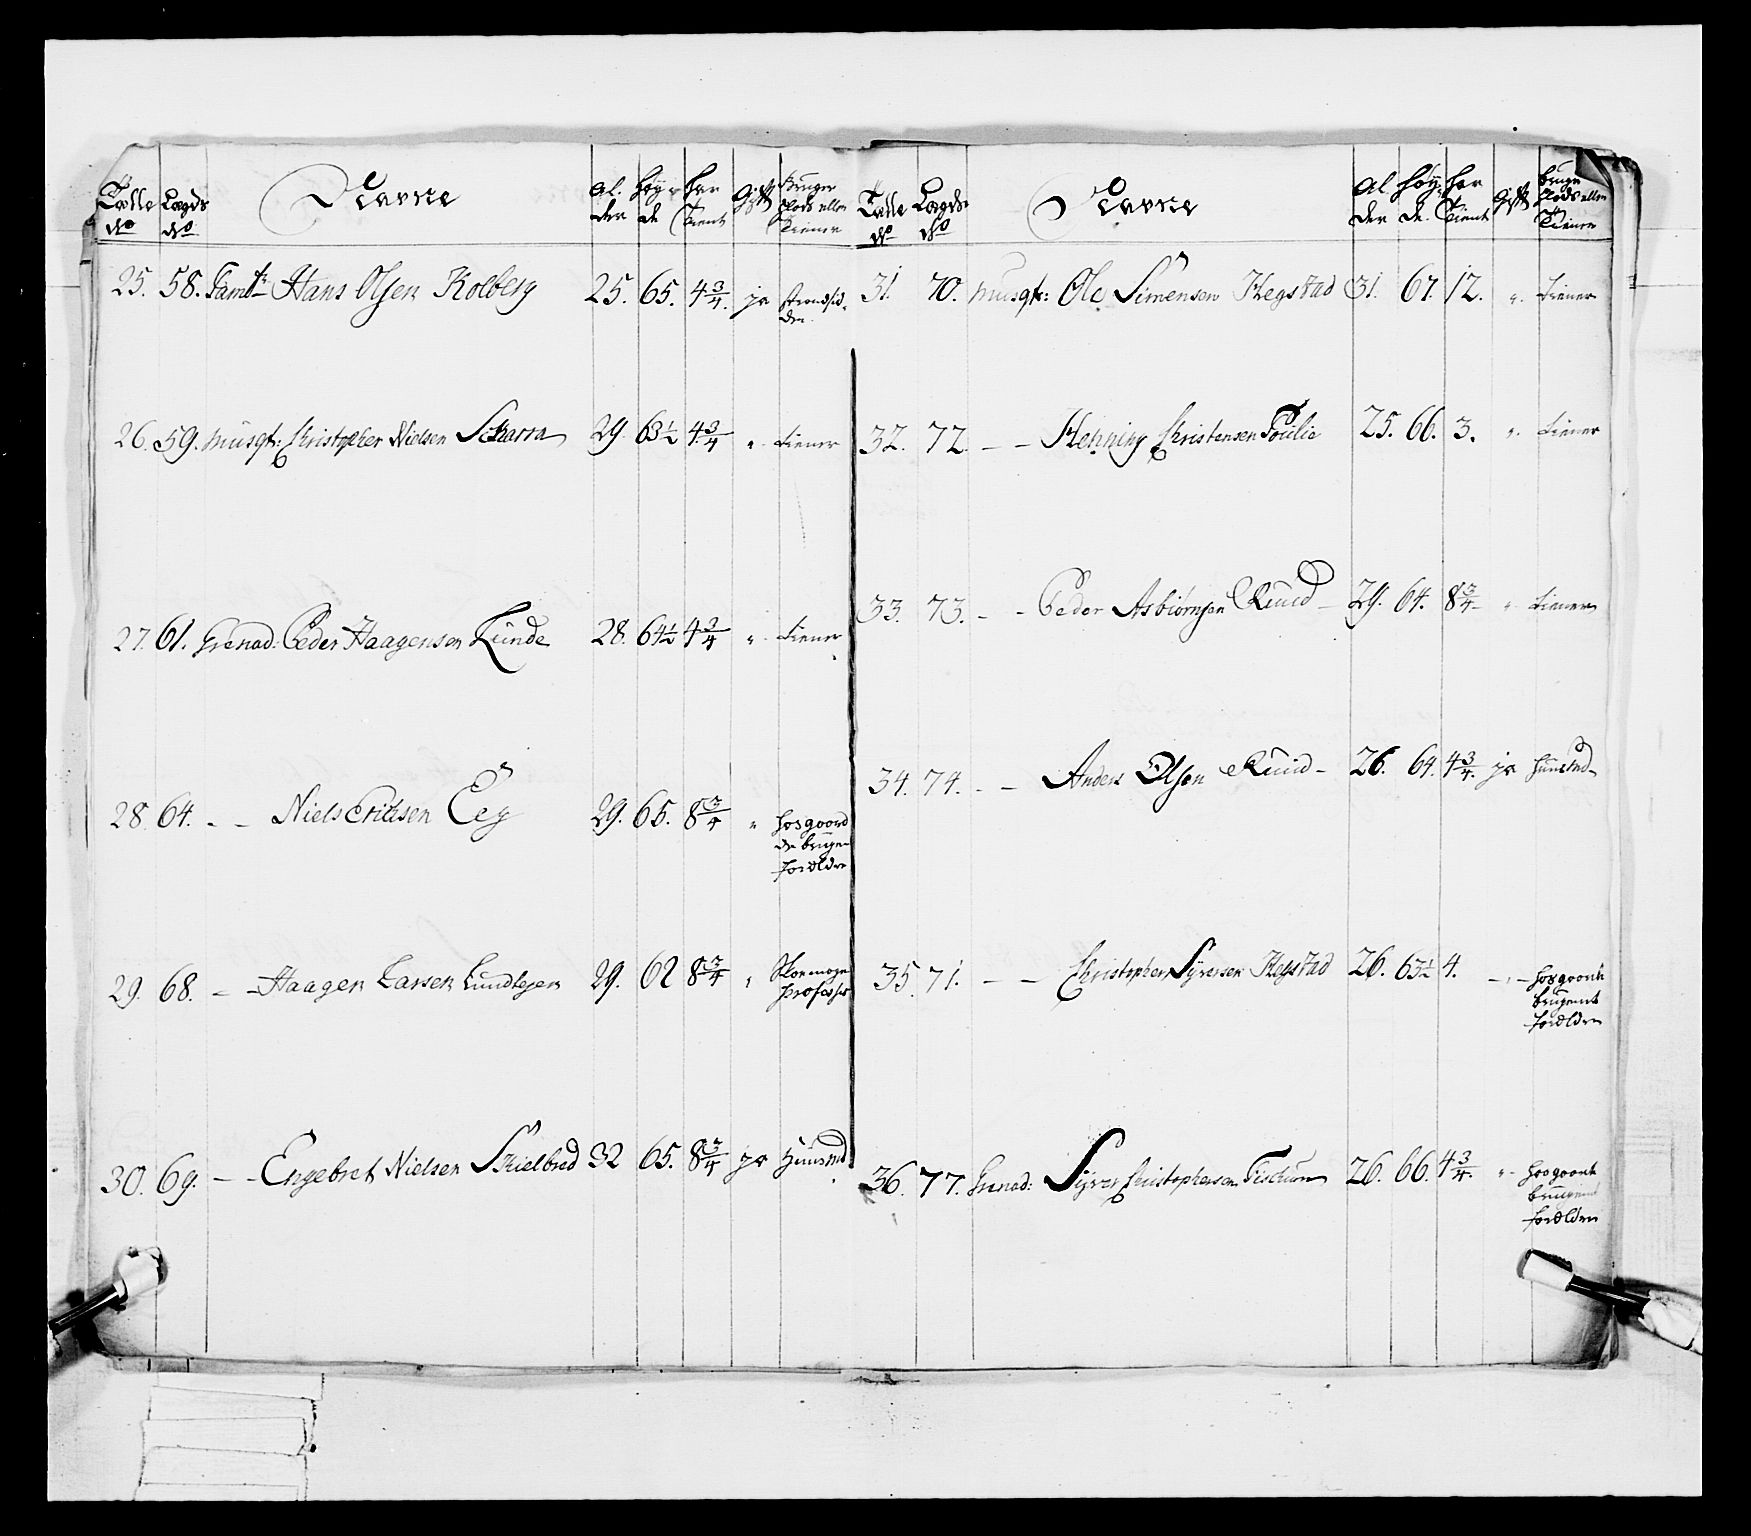 Tælle No Lægds No Navne Al der Høy de har Tient Gift Bruger Plads eller Tiener
25. 58. Tambr Hans Olsen Kolberg 25. 65. 4 3/4. ja
26. 59. Musqt: Christopher Nielsen Skarra 29. 63 1/2 4 3/4 " tiener
27. 61. Grenad: Peder Haagensen Lunde 28. 64 1/2 4 3/4 " tiener
28. 64. - - Niels Eriksen Eeg 29. 65. 8 3/4 " hos gaard
de bruger
forældre
29. 68. - - Haagen Larsen Lundhagen 29. 62 8 3/4 " Skoemager
profession
30. 69. - - Engebret Nielsen Skielbred 32 65. 8 3/4 ja Huusmd
Tælle No Lægds No Navne Al der Høy de. har Tient Gift Bruger Plads eller Tiener
31. 70. Musqt: Ole Simensen Hegstad 31. 67. 12. " tiener
32. 72. - - Henning Christensen 25. 66. 3. " tiener
33. 73. - - Peder Asbiørnsen Ruud - 29. 64. 8 3/4 - " tiener
34. 74. - - Anders Olsen Ruud - 26. 64. 4 3/4. ja huusmd
35. 71. - - Christopher Syversen Hegstad 26. 63 1/2 4. - " - hos gaard
brugende
forældre
36. 77. Grenad: Syver Christophersen 26. 66. 4 3/4. " - hos gaard
brugende
forældre